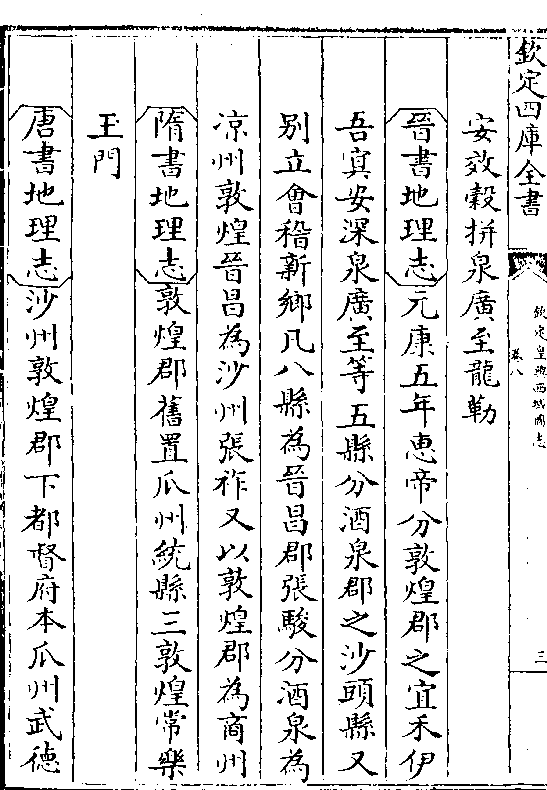 欽定四庫全書
欽定皇輿西域圖志
卷八
三
安效穀拼泉廣至龍勒
晉書地理志元康五年惠帝分敦煌郡之宜禾伊
吾㝠安深泉廣至等五縣分酒泉郡之沙頭縣又
別立會稽新鄉凡八縣為晉昌郡張駿分酒泉為
凉州敦煌晉昌為沙州張祚又以敦煌郡為商州
隋書地理志敦煌郡舊置瓜州統縣三敦煌常樂
玉門
唐書地理志沙州敦煌郡下都督府本瓜州武德